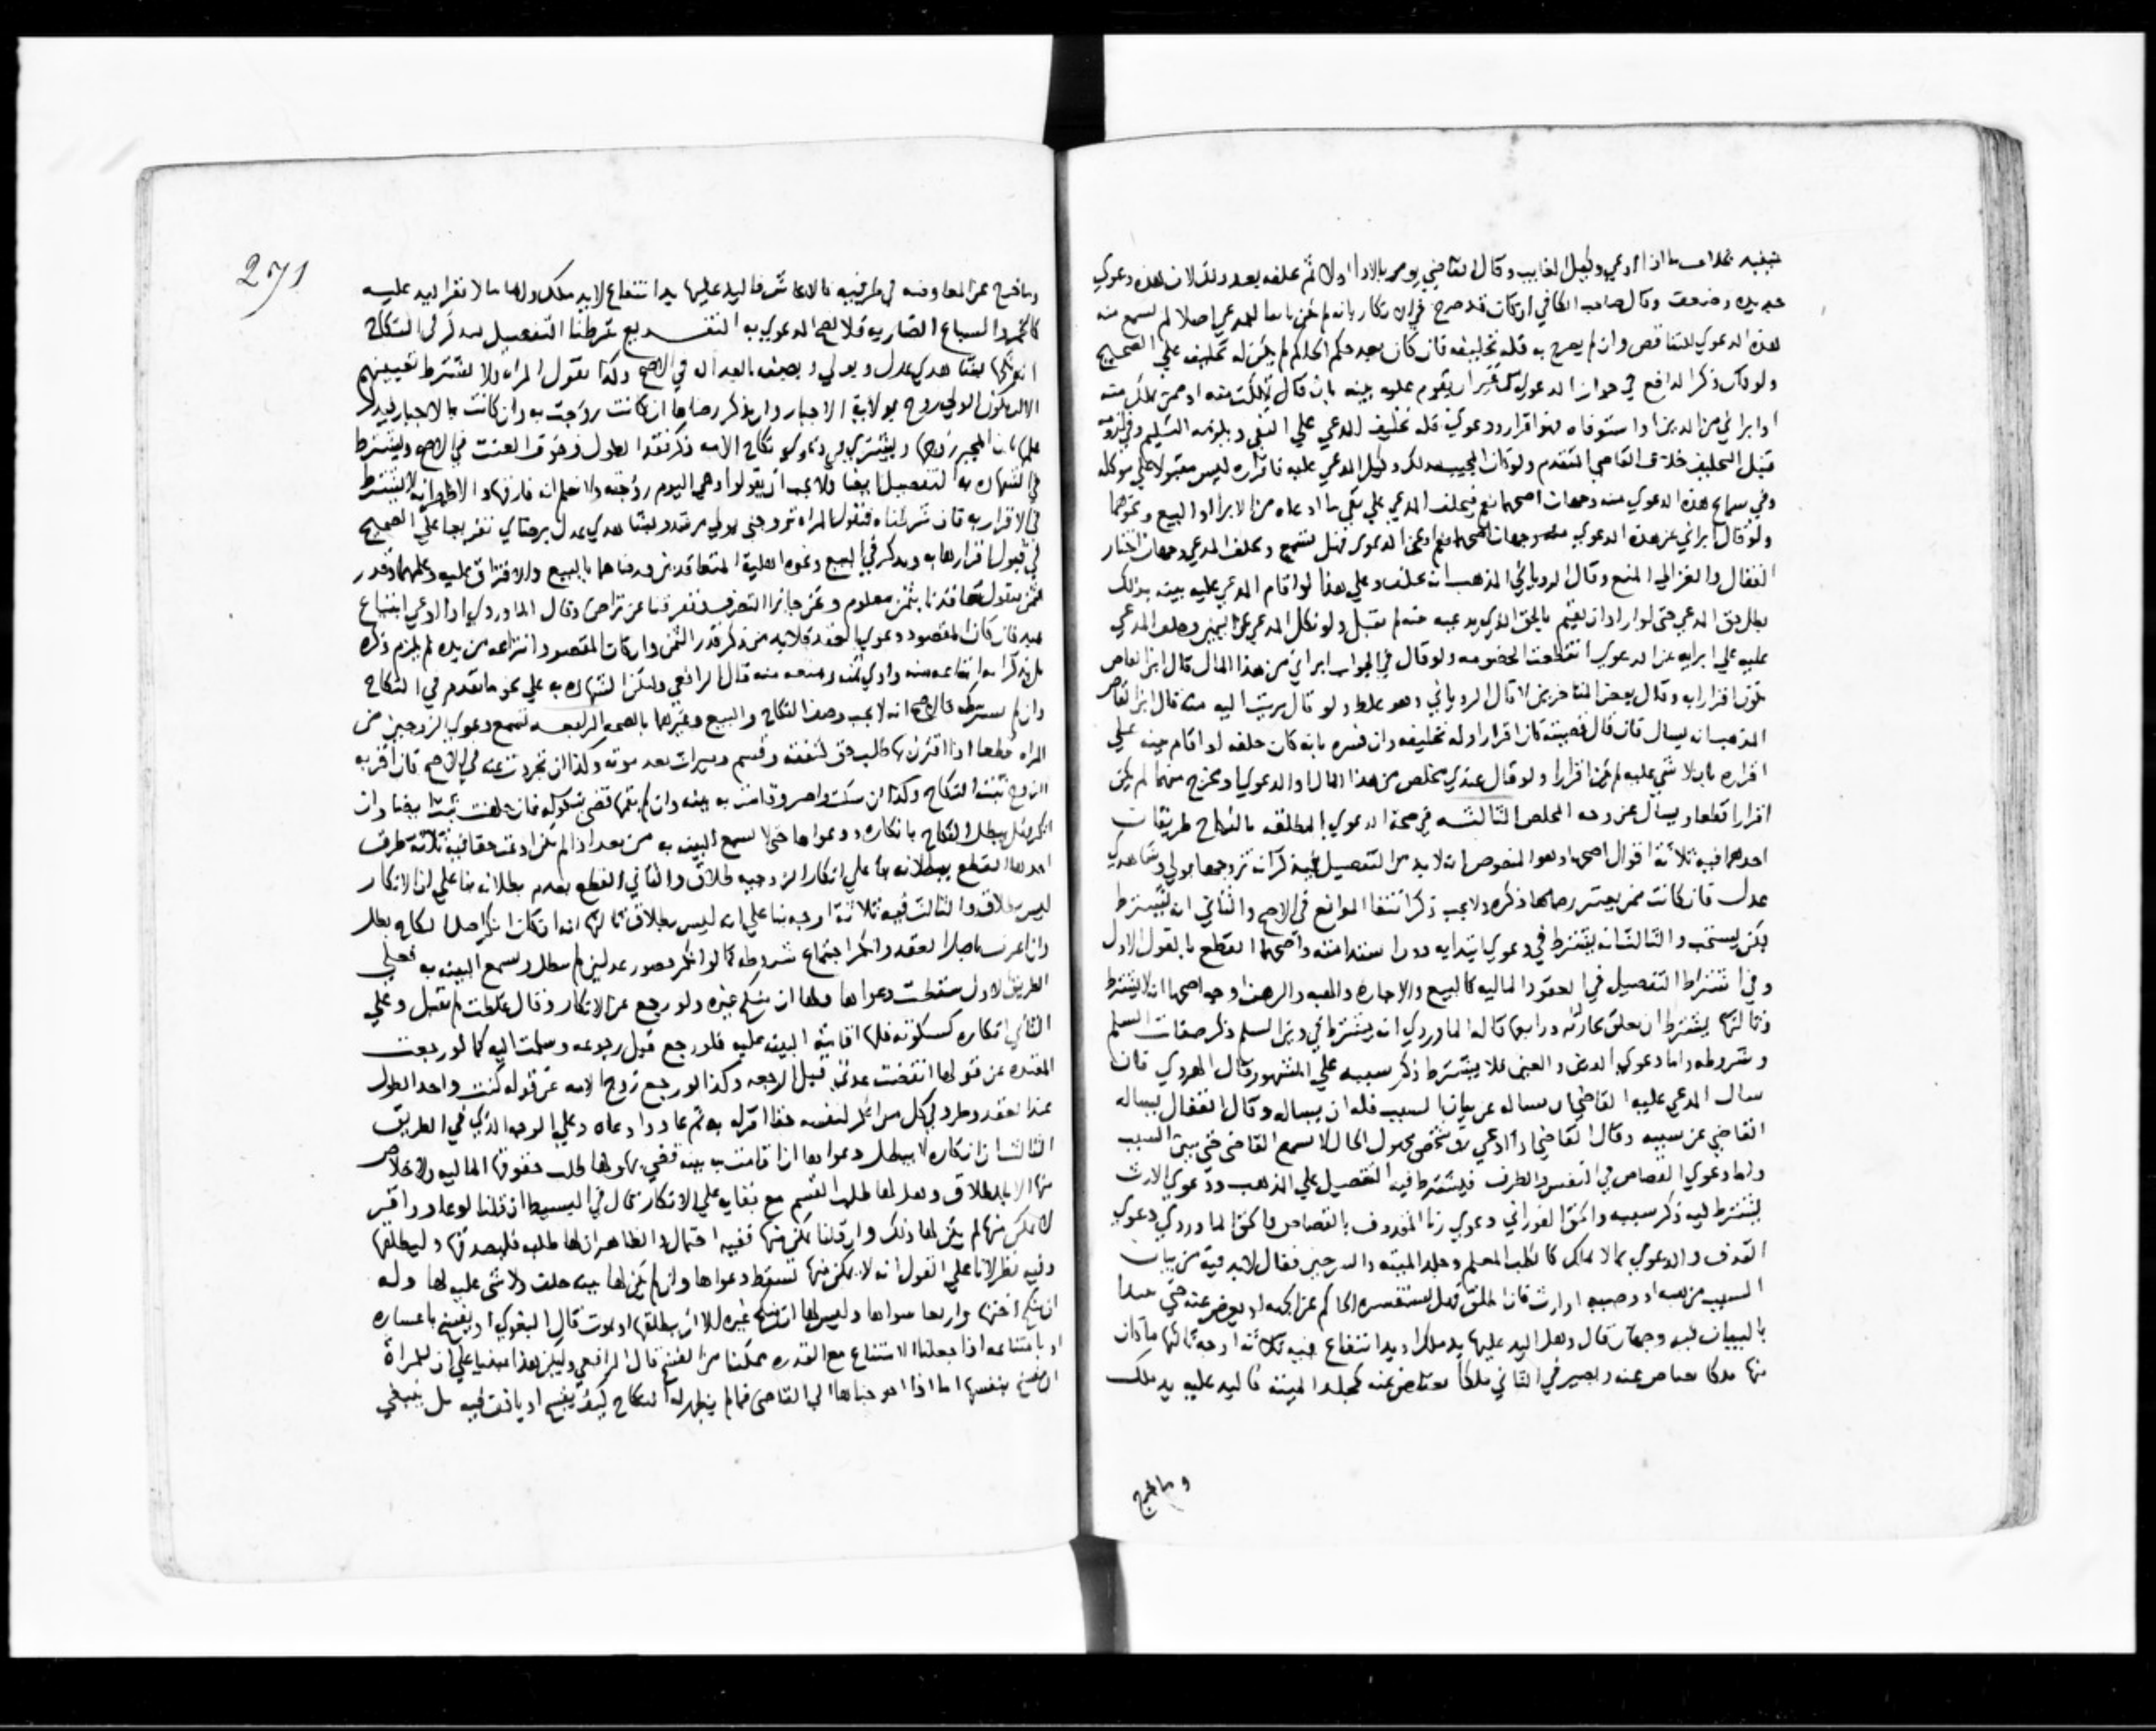 بخلاف ما اذا ادعي وكيل الغايب وقال القاضي يومر بالاداء اولا ثم يحلفه بعد وذلك لان هذه دعوي
جديده وضعف وقال صاحب الكافي ان كان قد صرح في انكاره بانه لم يكن بايعا للمدعي اصلا لم تسمع منه
هذه الدعوي للتناقض وان لم يصرح به فله تحليفه فان كان بعد حكم الحاكم لم يكن له تحليفه علي الصحيح
ولو ذكر الدافع في جواز الدعوي من غير ان يقوم عليه بينه بان قال ملكت منه او ممن ملك منه
او ابراني من الدين او استوفاه فهو اقرار ودعوي فله تحليف المدعي علي النفي ويلزمه التسليم وفي لزومه
قبل التحليف خلاف القاضي المتقدم ولو كان المجيب بذلك وكيل المدعي عليه فاقراره ليس مقبولا علي موكله
وفي سماع هذه الدعوي منه وجهان اصحهما نعم فيحلف المدعي علي نفي ما ادعاه من الابرا او البيع ونحوهما
ولو قال ابراني عن هذه الدعوي فهل تسمع ويحلف المدعي وجهان اختار
القفال والغزالي المنع وقال الروياني المذهب انه يحلف وعلي هذا لو اقام المدعي عليه بينه بذلك
بطل حق المدعي حتي لو اراد ان يقيم بالحق الذي يدعيه بينه لم تقبل ولو نكل المدعي عن اليمين وحلف المدعي
عليه علي ابرايه عن الدعوي انقطعت الخصومه ولو قال في الجواب ابراني من هذا المال قال ابن القاص
يكون اقرارا به وقال بعض المتاخرين لا قال الروياني وهو غلط ولو قال بريت اليه منه قال ابن القاص
المذهب انه يسال فان قال قضيته كان اقرارا وله تحليفه وان فسره بانه كان حلفه او اقام بينه علي
اقراره بان لا شي عليه لم يكن اقرارا ولو قال عندي مخلص من هذا المال او الدعوي او مخرج منهما لم يكن
اقرارا قطعا ويسال عن وجه المخلص الثالثه في صحه الدعوي المطلقه بالنكاح طريقان
احدهما فيه ثلاثة اقوال اصحها وهو المنصوص انه لا بد من التفصيل فيذكر انه تزوجها بولي وشاهدي
عدل فان كانت ممن يعتبر رضاها ذكره ولا يجب ذكر انتفا الموانع في الاصح والثاني انه لا يشترط
لكن يستحب والثالث انه يشترط في دعوي ابتدايه دون استدامته واصحهما القطع بالقول الاول
وفي اشتراط التفصيل في العقود الماليه كالبيع والاجاره والهبه والرهن اوجه اصحها انه لا يشترط
وثالثها يشترط ان تعلق بجاريه ورابعها قاله الماوردي انه يشترط في دين السلم ذكر صفات السلم
وشروطه واما دعوي الدين والعين فلا يشترط ذكر سببه علي المشهور وقال الهروي فان
سال المدعي عليه القاضي ان يساله عن بيان السبب فله ان يساله وقال القفال يساله
القاضي عن سببه وقال القاضي اذا ادعي شخص مجهول الحال لا يسمع القاضي حتي يبين السبب
واما دعوي القصاص في النفس والطرف فيشترط فيه التفصيل علي المذهب ودعوي الارث
يشترط فيه ذكر سببه والحق الفوراني دعوي زنا المقذوف بالقصاص والحق الماوردي دعوي
القذف والدعوي بما لا يملك كالكلب المعلم وجلد الميته والسرجين فقال لابد فيه من بيان
السبب من هبه او وصيه او ارث فان اطلق فهل يستفسره الحاكم عن الجهه او يعرض عنه حتي يبتدا
بالبيان فيه وجهان قال وهل اليد عليها يد ملك او يد انتفاع فيه ثلاثة اوجه ثالثها ما كان
منها ملكا يعاض عنه ويصير في الثاني ملكا يعتاض عنه كجلد الميته فاليد عليه يد ملك
وما خرج
271
وما خرج عن المعاوضه في طرفيه فاليد عليها يد انتفاع لا يد ملك واما ما لا تقر اليد عليه
كالخمر والسباع الضاريه فلا تصح الدعوي به التفريع شرطنا التفصيل يذكر في النكاح
بشاهدي عدل وبولي ويصفه بالعداله في الاصح وكذا يقول المراه ولا يشترط تعيينهم
الا ان يكون الولي زوج بولاية الاجبار وان يذكر رضاها ان كانت زوجت به وان كانت بالاجبار فيذكر
ويشترط في دعوي نكاح الامه ذكر فقد الطول وخوف العنت في الاصح ويشترط
في الشهاده به التفصيل ايضا ولا يجب ان يقولوا وهي اليوم زوجته ولا نعلم انه فارقها والاظهر انه لا يشترط
في الاقرار به فان شرطناه فتقول المراه تزوجني بولي مرشد وبشاهدي عدل برضاي تفريعا علي الصحيح
في قبول اقرارها به ويذكر في البيع ونحوه اهلية المتعاقدين ورضاهما بالبيع والافتراق عليه وعلمهما وقدر
الثمن فيقول تعاقدنا بثمن معلوم ونحن جايزا التصرف وتفرقنا عن تراض وقال الماوردي اذا ادعي ابتياع
عبد فان كان المقصود دعوي العقد فلابد من ذكر قدر الثمن وان كان المقصود انتزاعه من يده لم يلزم ذكره
بل يذكر انه ابتاعه منه وادي ثمنه ومنعه منه قال الرافعي ولتكن الشهاده به علي نحو ما تقدم في النكاح
وان لم نشترطه فالاصح انه لا يجب وصف النكاح والبيع وغيرهما بالصحه الرابعه تسمع دعوي الزوجين من
المراه قطعا اذا اقترن بها طلب حق كنفقه وقسم وميراث بعد موته وكذا ان تجردت عنه في الاصح فان اقر به
الزوج ثبت النكاح وكذا ان سكت واصر وقامت به بينه وان لم تقمها قضي بنكوله فان حلفت ثبت ايضا وان
انكر فهل يبطل النكاح بانكاره ودعواها حتي لا تسمع البينه به من بعد اذا لم تكن ادعت حقا فيه ثلاثة طرق
احدها القطع ببطلانه بنا علي ان انكار الزوجيه طلاق والثاني القطع بعدم بطلانه بنا علي ان الانكار
ليس بطلاق والثالث فيه ثلاثة اوجه بنا علي انه ليس بطلاق ثالثها انه ان كان انكر اصل النكاح بطل
وان اعترف باصل العقد وانكر اجتماع شروطه كما لو انكر حضور عدلين لم يبطل وتسمع البينه به فعلي
الطريق الاول سقطت دعواها ولها ان تنكح غيره ولو رجع عن الانكار وقال غلطت لم تقبل وعلي
الثاني انكاره كسكوته فلها اقامة البينه عليه فلو رجع قبل رجوعه وسلمت اليه كما لو رجعت
المعتده عن قولها انقضت عدتي قبل الرجعه وكذا لو رجع زوج الامه عن قوله كنت واجد الطول
عند العقد وطرد في كل من انكر لنفسه حقا اقر له به ثم عاد وادعاه وعلي الوجه الذي في الطريق
الثالث ان انكاره لا يبطل دعواها اذا قامت به بينه قضي بها ولها طلب حقوقها الماليه ولا خلاص
منها الا بالطلاق وهل لها طلب القسم مع بقايه علي الانكار قال في البسيط ان قلنا لو عاد واقر
لا تمكن منها لم يكن لها ذلك وان قلنا يمكن منها ففيه احتمال والظاهر ان لها طلبه فليصدقها وليطلقها
وفيه نظر لانا علي القول انه لا يمكن منها تسقط دعواها وان لم يكن لها بينه حلف ولا شي عليه لها وله
ان ينكح اختها واربعا سواها وليس لها ان تنكح غيره الا ان يطلقها او يموت قال البغوي او يفسخ باعساره
او بامتناعه اذا جعلنا الامتناع مع القدره ممكنا من الفسخ قال الرافعي وليكن هذا مبنيا علي ان للمراة
ان تفسخ بنفسها اما اذا احوجناها الي القاضي فما لم يظهر له النكاح كيف يفسخ او ياذن فيه بل ينبغي